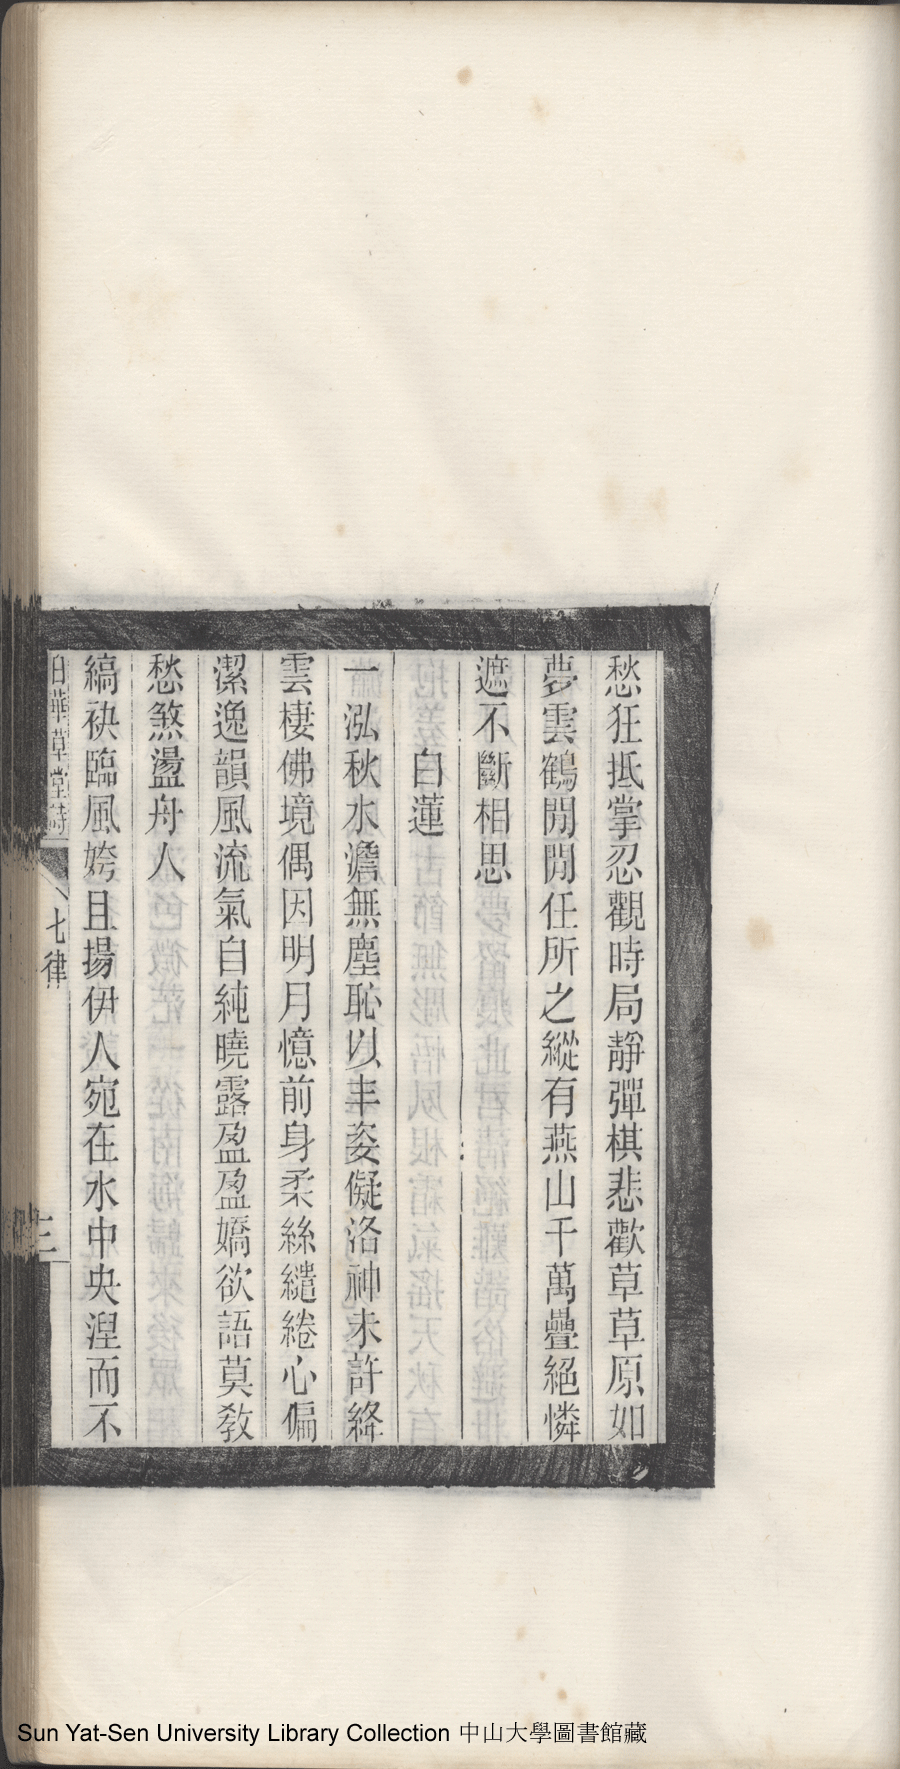 愁狂抵掌忍觀時局靜彈棋悲歡草草原如
夢雲鶴閒閒任所之縱有燕山千萬疊絕憐
遮不斷相思
白蓮
一泓秋水澹無塵恥以丰姿儗洛神未許絳
雲棲佛境偶因明月憶前身柔絲繾綣心偏
潔逸韻風流氣自純曉露盈盈嬌欲語莫教
愁煞盪舟人
縞袂臨風姱且揚伊人宛在水中央涅而不
華草堂詩
七律
Sun Yat-Sen University Library Collection 中山大學圖書館藏